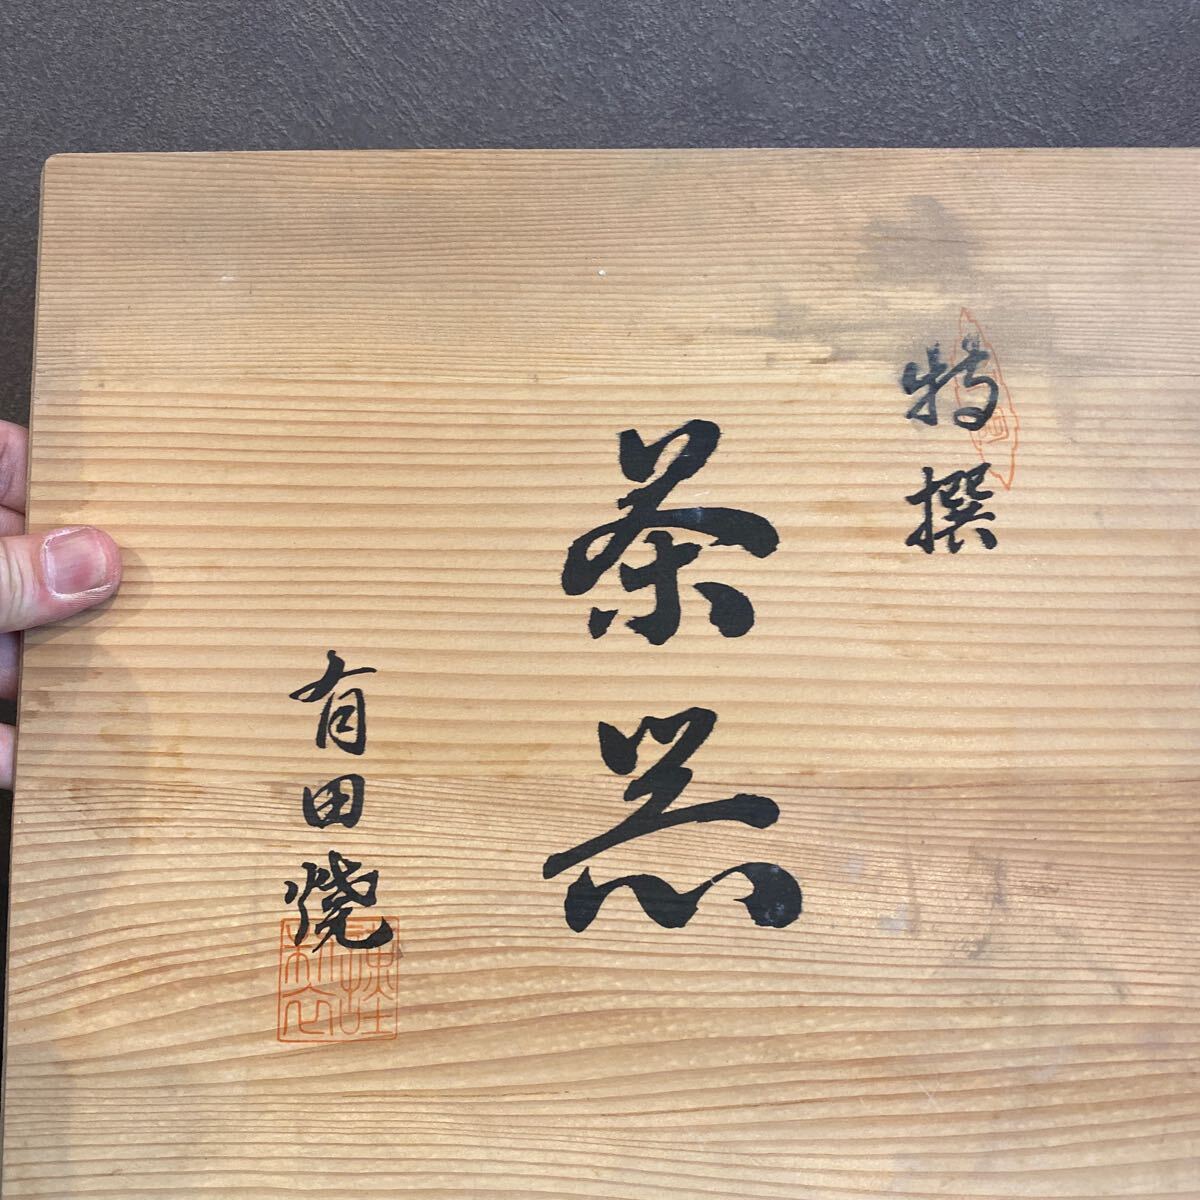 特撰
茶器
有田焼